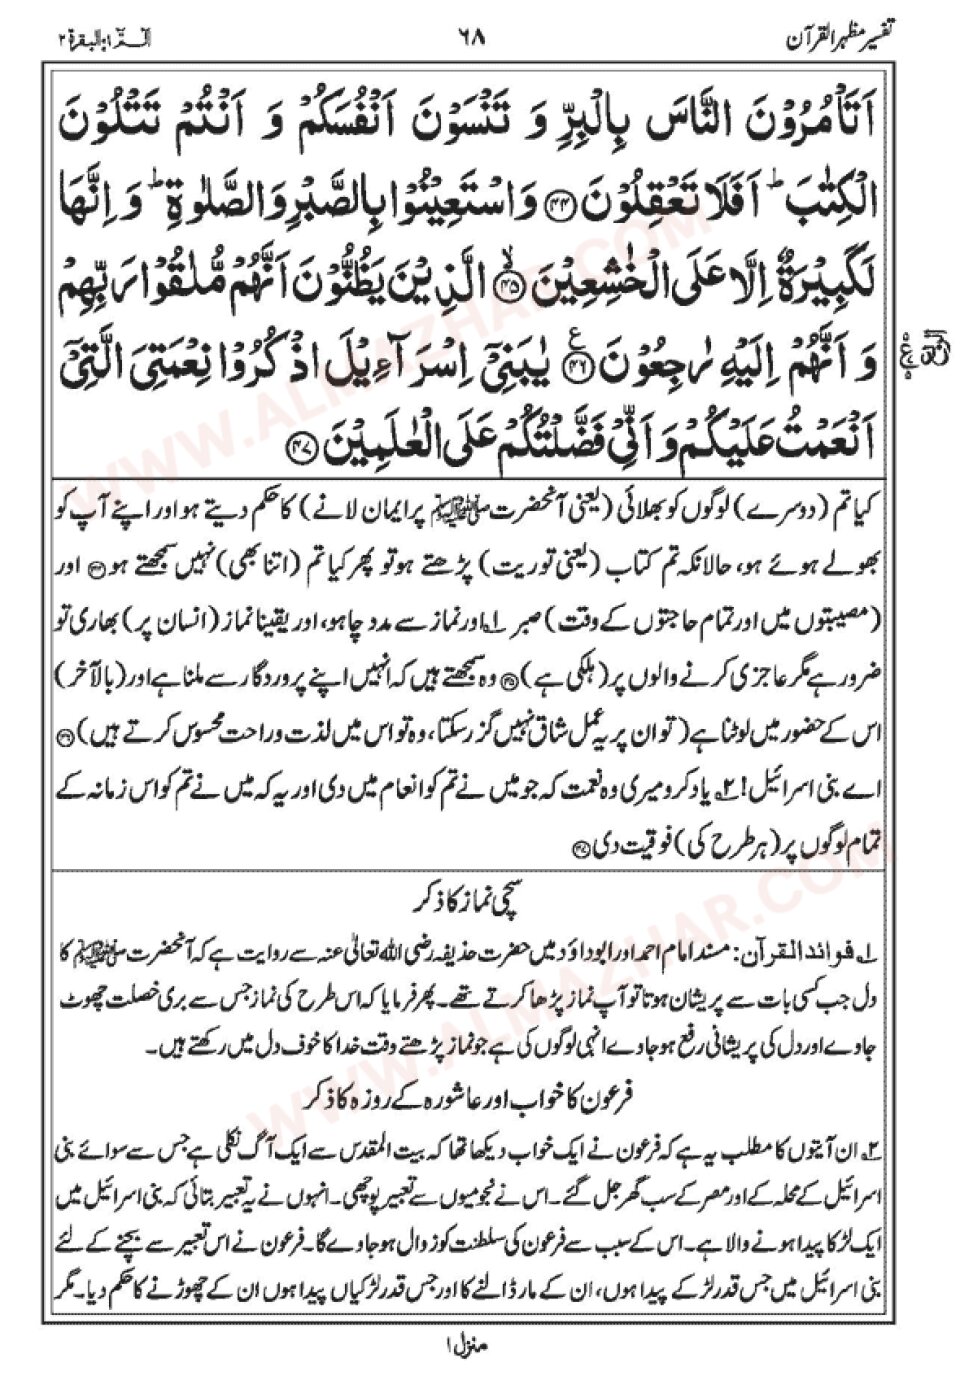 تفسیر مظہر القرآن
۶۸
الٓمّٓ ۱ البقرۃ ۲
اَتَاْمُرُوْنَ النَّاسَ بِالْبِرِّ وَ تَنْسَوْنَ اَنْفُسَكُمْ وَ اَنْتُمْ تَتْلُوْنَ
الْكِتٰبَ ؕ اَفَلَا تَعْقِلُوْنَ ۴۴ وَ اسْتَعِیْنُوْا بِالصَّبْرِ وَ الصَّلٰوةِ ؕ وَ اِنَّهَا
لَكَبِیْرَةٌ اِلَّا عَلَى الْخٰشِعِیْنَ ۙ ۴۵ الَّذِیْنَ یَظُنُّوْنَ اَنَّهُمْ مُّلٰقُوْا رَبِّهِمْ
وَ اَنَّهُمْ اِلَیْهِ رٰجِعُوْنَ ۴۶ ع یٰبَنِیْۤ اِسْرَآءِیْلَ اذْكُرُوْا نِعْمَتِیَ الَّتِیْۤ
اَنْعَمْتُ عَلَیْكُمْ وَ اَنِّیْ فَضَّلْتُكُمْ عَلَى الْعٰلَمِیْنَ ۴۷
کیا تم (دوسرے) لوگوں کو بھلائی (یعنی آنحضرت ﷺ پر ایمان لانے) کا حکم دیتے ہو اور اپنے آپ کو
بھولے ہوئے ہو، حالانکہ تم کتاب (یعنی توریت) پڑھتے ہو تو پھر کیا تم (اتنا بھی) نہیں سمجھتے ہو ۴۴ اور
(مصیبتوں میں اور تمام حاجتوں کے وقت) صبر ۱؎ اور نماز سے مدد چاہو، اور یقینا نماز (انسان پر) بھاری تو
ضرور ہے مگر عاجزی کرنے والوں پر (ہلکی ہے) ۴۵ وہ سمجھتے ہیں کہ انہیں اپنے پروردگار سے ملنا ہے اور (بالآخر)
اس کے حضور میں لوٹنا ہے (تو ان پر یہ عمل شاق نہیں گزر سکتا، وہ تو اس میں لذت و راحت محسوس کرتے ہیں) ۴۶
اے بنی اسرائیل! ۲؎ یاد کرو میری وہ نعمت کہ جو میں نے تم کو انعام میں دی اور یہ کہ میں نے تم کو اس زمانہ کے
تمام لوگوں پر (ہر طرح کی) فوقیت دی ۴۷
سچی نماز کا ذکر
۱؎ فوائد القرآن: مسند امام احمد اور ابوداؤد میں حضرت حذیفہ رضی اللہ تعالیٰ عنہ سے روایت ہے کہ آنحضرت ﷺ کا
دل جب کسی بات سے پریشان ہوتا تو آپ نماز پڑھا کرتے تھے۔ پھر فرمایا کہ اس طرح کی نماز جس سے بری خصلت چھوٹ
جاوے اور دل کی پریشانی رفع ہو جاوے انہی لوگوں کی ہے جو نماز پڑھتے وقت خدا کا خوف دل میں رکھتے ہیں۔
فرعون کا خواب اور عاشورہ کے روزہ کا ذکر
۲؎ ان آیتوں کا مطلب یہ ہے کہ فرعون نے ایک خواب دیکھا تھا کہ بیت المقدس سے ایک آگ نکلی ہے جس سے سوائے بنی
اسرائیل کے محلہ کے اور مصر کے سب گھر جل گئے۔ اس نے نجومیوں سے تعبیر پوچھی۔ انہوں نے یہ تعبیر بتائی کہ بنی اسرائیل میں
ایک لڑکا پیدا ہونے والا ہے۔ اس کے سبب سے فرعون کی سلطنت کو زوال ہو جاوے گا۔ فرعون نے اس تعبیر سے بچنے کے لئے
بنی اسرائیل میں جس قدر لڑکے پیدا ہوں، ان کے مار ڈالنے کا اور جس قدر لڑکیاں پیدا ہوں ان کے چھوڑنے کا حکم دیا۔ مگر
منزل ۱
WWW.ALMAZHAR.COM
WWW.ALMAZHAR.COM